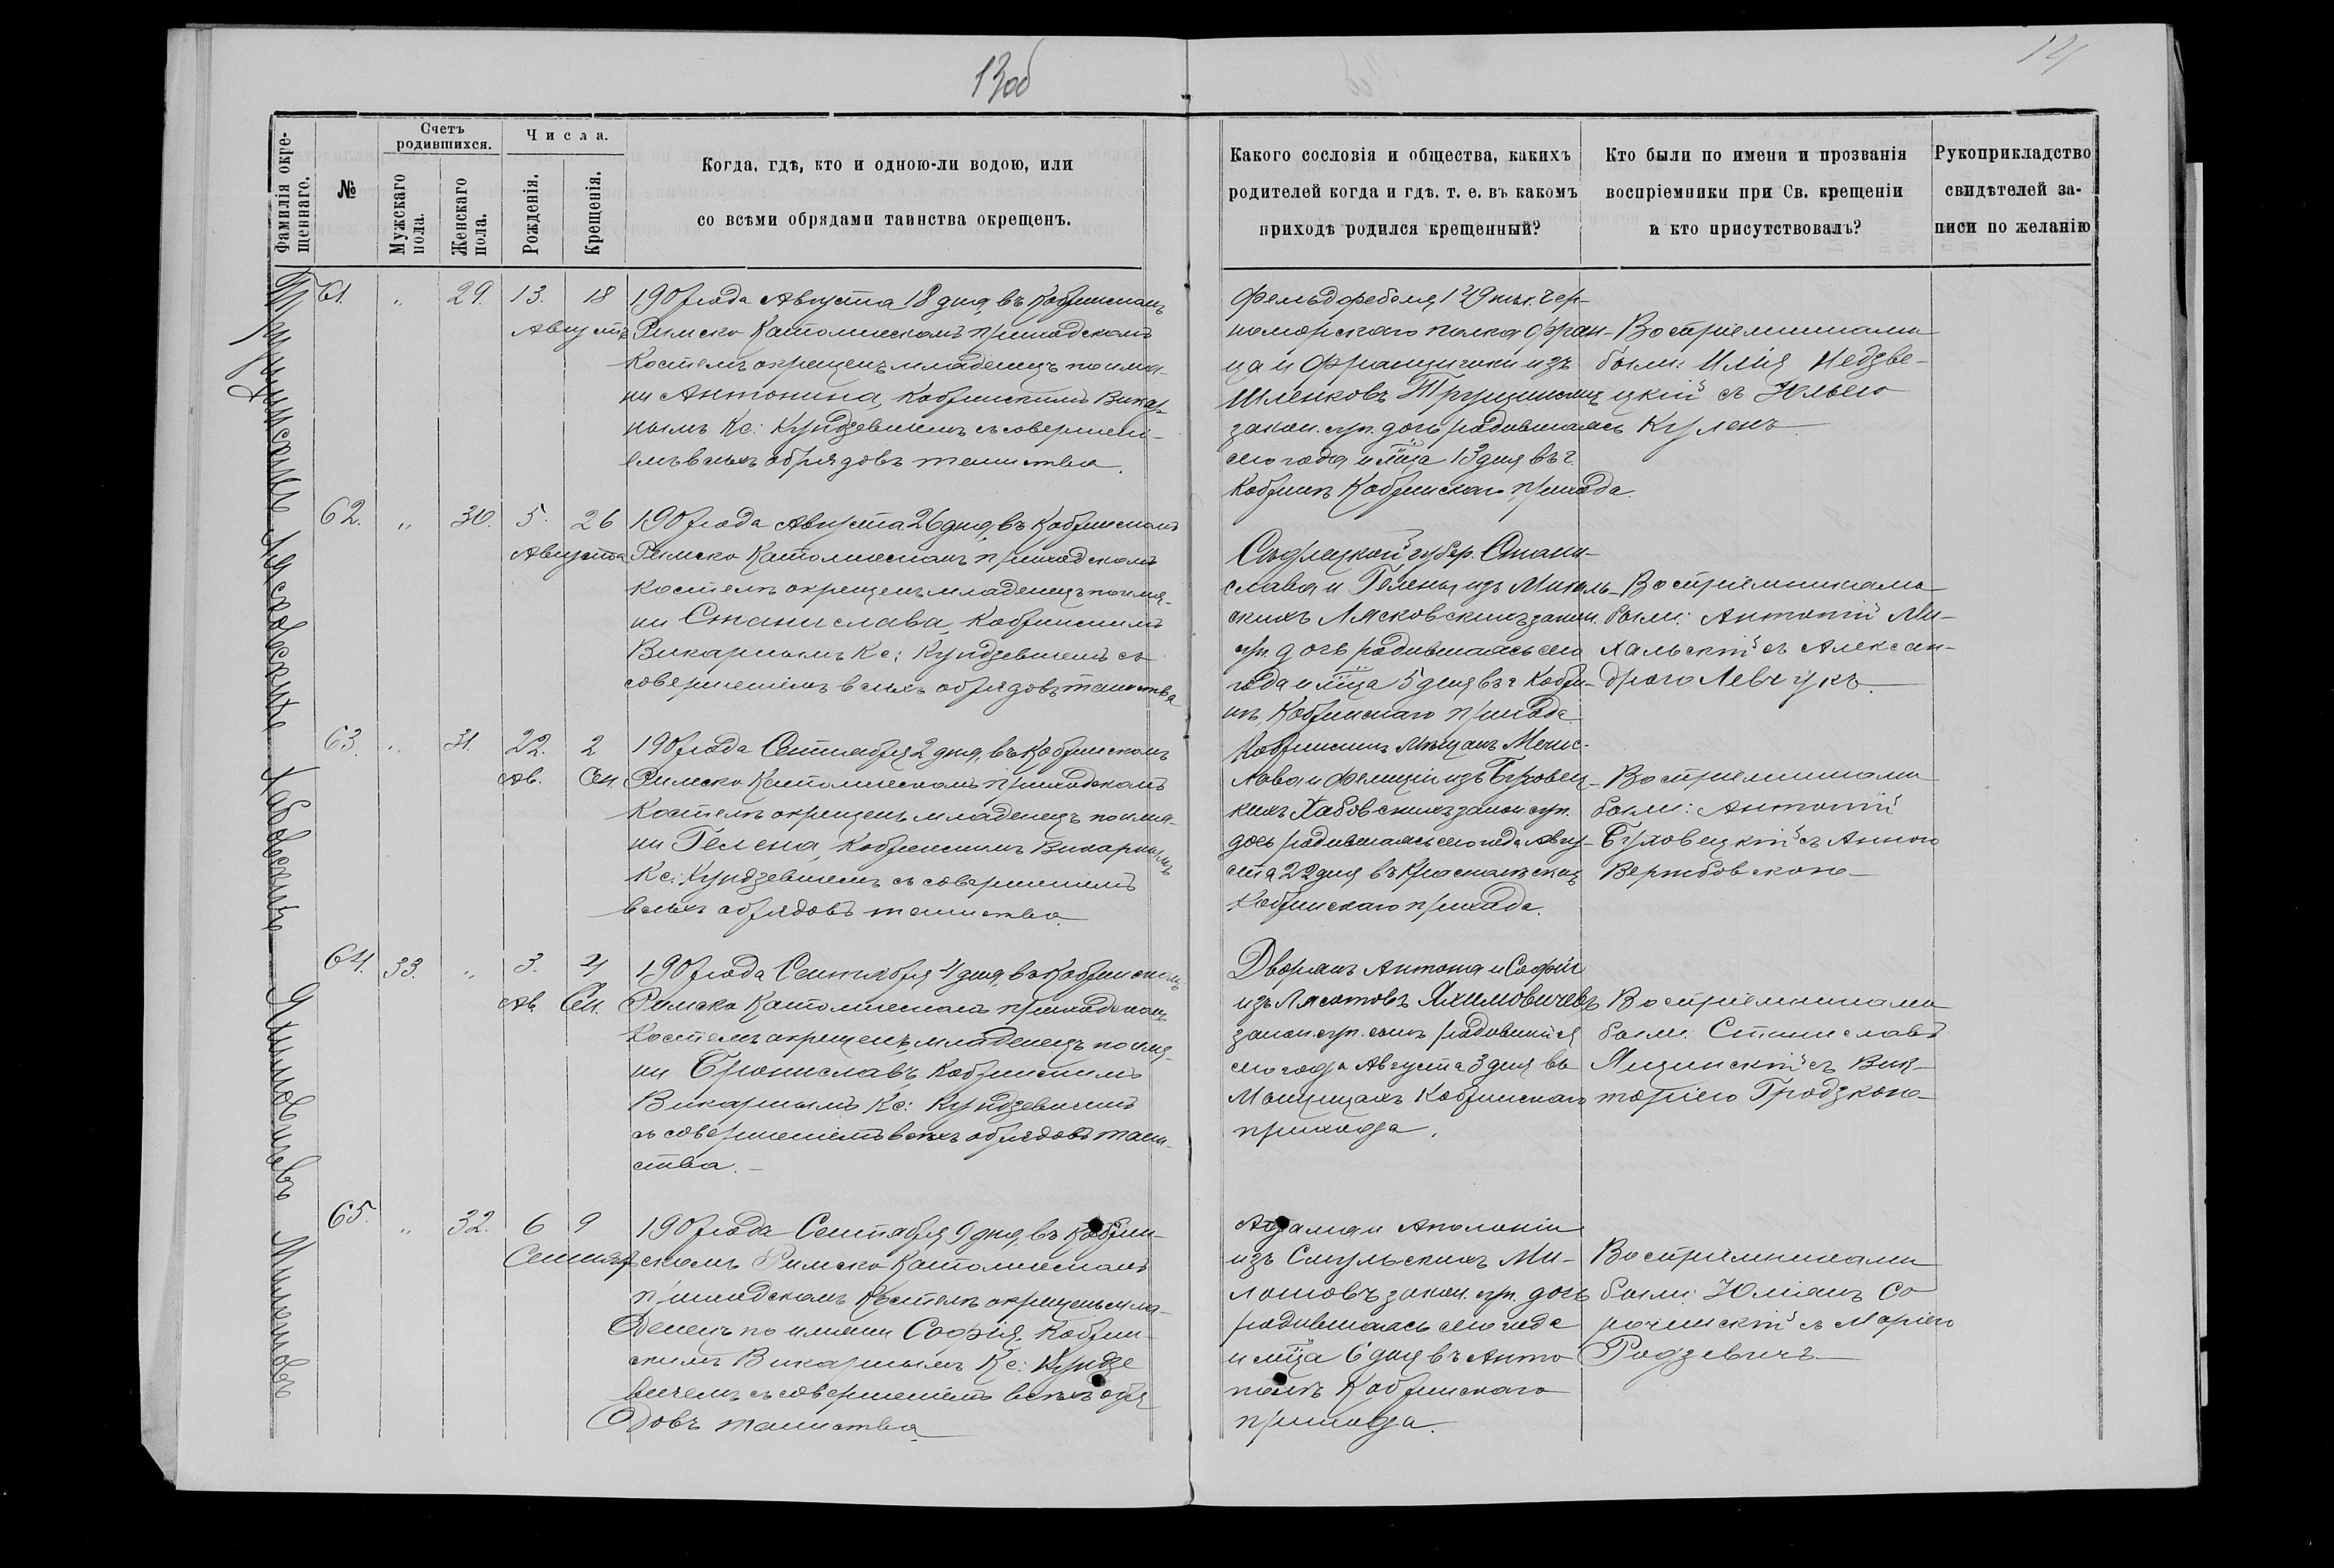 13об
14
Фамилія окре-
щеннаго.
№
Счетъ
родившихся.
Мужскаго
пола.
Женскаго
пола.
Числа.
Рожденія.
Крещенія.
Когда, гдѣ, кто и одною-ли водою, или
со всѣми обрядами таинства окрещенъ.
Какого сословія и общества, какихъ
родителей когда и гдѣ. т. е. въ какомъ
приходѣ родился крещенный?
Кто были по имени и прозванія
воспріемники при Св. крещеніи
и кто присутствовалъ?
Рукоприкладство
свидѣтелей за-
писи по желанію
61. " 29. 13. 18
Августъ
1907 года Августа 18 дня, въ Кобринскомъ
Римско Католическомъ приходскомъ
Костелѣ окрещенъ младенецъ по имя-
ни Антонина, Кобринскимъ Викар-
нымъ Кс: Кундзевичемъ съ совершені-
емъ всѣхъ обрядовъ таинства.
Фельдфебеля 149 пѣх. Чер-
номорскаго полка Фран-
ца и Францишки изъ
Шленковъ Трущинскихъ
закон. суп. дочь родившаяся
сего года и м̃ца 13 дня въ г.
Кобринѣ Кобринскаго прихода.
Воспріемниками
были: Илія Недзве-
цкій съ Юльею
Куленъ
62. " 30. 5. 26
Августа
1907 года Августа 26 дня, въ Кобринскомъ
Римско Католическомъ приходскомъ
костелѣ окрещенъ младенецъ по имя-
ни Станислава, Кобринскимъ
Викарнымъ Кс: Кундзевичемъ съ
совершеніемъ всѣхъ обрядовъ таинства
Сѣдлецкой губер. Стани-
слава и Гелены изъ Михаль-
скихъ Лясковскихъ закон.
суп. дочь родившаяся сего
года и м̃ца 5 дня въ г. Кобри-
нѣ, Кобринскаго прихода.
Воспріемниками
были: Антоній Ми-
хальскій съ Алексан-
дрою Левчукъ.
63. " 31. 22. 2
Ав. Сен.
1907 года Сентября 2 дня, въ Кобринскомъ
Римско Католическомъ приходскомъ
Костелѣ окрещенъ младенецъ по имя-
ни Гелена, Кобринскимъ Викарнымъ
Кс: Кундзевичемъ съ совершеніемъ
всѣхъ обрядовъ таинства.
Кобринскихъ мѣщанъ Мечис-
лава и Фелиціи изъ
кихъ Хабовскихъ закон. суп.
дочь родившаяся сего года Авгу-
ста 22 дня въ
Кобринскаго прихода.
Воспріемниками
были: Антоній
Буховецкій съ Анною
Вержбовскою
64. 33. " 3. 4
Ав. Сен.
1907 года Сентября 4 дня, въ Кобринскомъ
Римско Католическомъ приходскомъ
Костелѣ окрещенъ младенецъ по имя-
ни Брониславъ, Кобринскимъ
Викарнымъ Кс: Кундзевичемъ
съ совершеніемъ всѣхъ обрядовъ таин-
ства.
Дворянъ Антона и Софіи
изъ Якимовичевъ
закон. суп. сынъ родившійся
сего года Августа 3 дня въ
Кобринскаго
прихода.
Воспріемниками
были: Станиславъ
съ Вик-
торіею Гродзкою
65. " 32. 6 9
Сентябр
1907 года Сентября 9 дня, въ Кобрин-
скомъ Римско Католическомъ
приходскомъ Костелѣ окрещенъ мла-
денецъ по имени Софія, Кобрин-
скимъ Викарнымъ Кс: Кундзе
вичемъ съ совершеніемъ всѣхъ обря
довъ таинства
Адама и Аполоніи
изъ Смульскихъ Ми-
лошовъ закон. суп. дочь
родившаяся сего года
и м̃ца 6 дня въ Анто
полѣ Кобринскаго
прихода.
Воспріемниками
были: Юліанъ Со
рочинскій съ Маріею
Родзевичъ
Трущинскаяъ Лясковскихъ Хабовскихъ Якимовичевъ Милошовъ